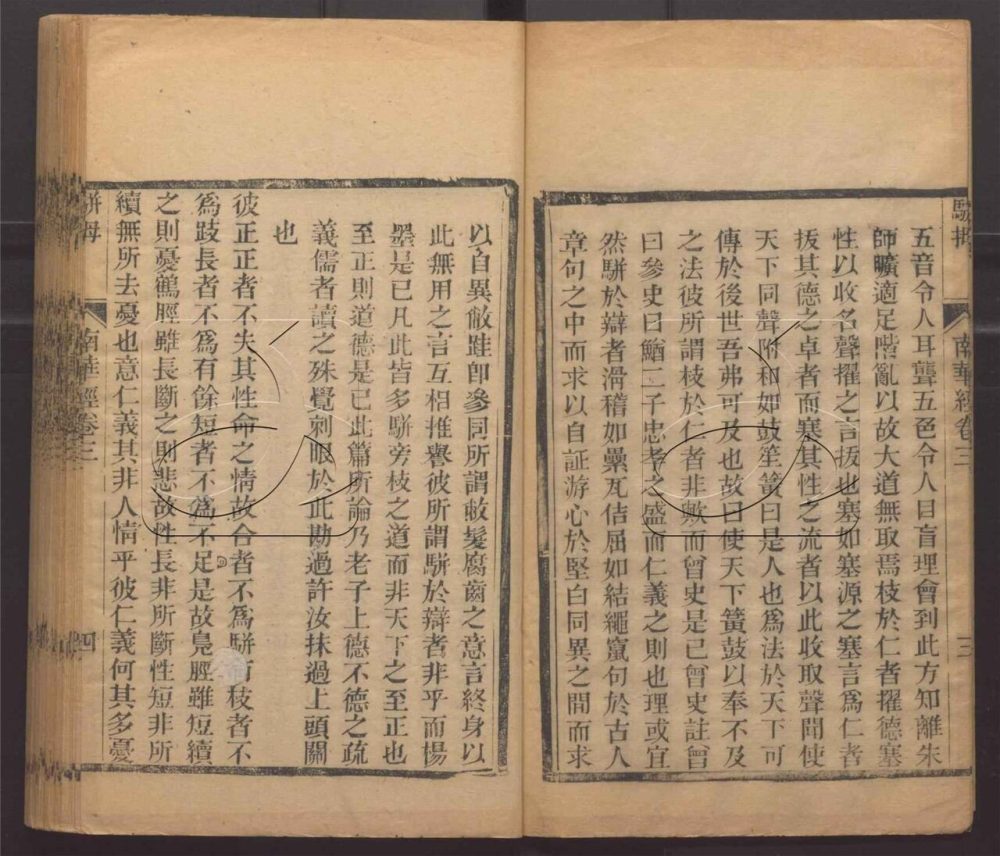 五音令人耳聾五色令人目盲理會到此方知離朱
師曠適足階亂以故大道無取焉枝於仁者擢德塞
性以收名聲擢之言拔也塞如塞源之塞言爲仁者
拔其德之卓者而塞其性之流者以此收取聲聞使
天下同聲附和如鼓笙簧曰是人也爲法於天下可
傳於後世吾弗可及也故曰使天下簧鼓以奉不及
之法彼所謂枝於仁者非歟而曾史是已曾史註曾
曰參史曰鰌二子忠孝之盛而仁義之則也理或宜
然駢於辯者滑稽如纍瓦佶屈如結繩竄句於古人
章句之中而求以自証游心於堅白同異之間而求
南華經卷三
三
以自異敝跬卽參同所謂敝髮腐齒之意言終身以
此無用之言互相推譽彼所謂駢於辯者非乎而楊
墨是已凡此皆多駢旁枝之道而非天下之至正也
至正則道德是已此篇所論乃老子上德不德之疏
義儒者讀之殊覺刺眼於此勘過許汝抹過上頭關
也
彼正正者不失其性命之情故合者不爲駢而枝者不
爲跂長者不爲有餘短者不爲不足是故鳧脛雖短續
之則憂鶴脛雖長斷之則悲故性長非所斷性短非所
續無所去憂也意仁義其非人情乎彼仁義何其多憂
駢拇
南華經卷三
四